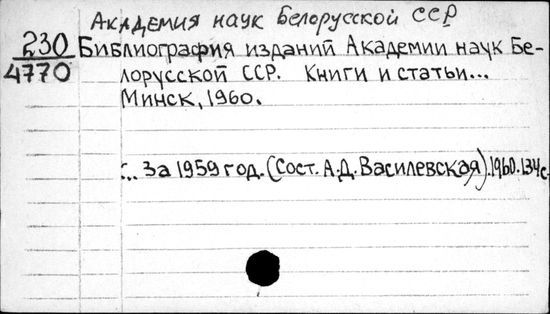 Академия наук Белорусской ССР
230 Библиография изданий Академии наук Бе-
4770 лорусской ССР. Книги и статьи...
Минск, 1960.
... За 1959 год. (Сост. А.Д. Василевская). 1960. 134 с.